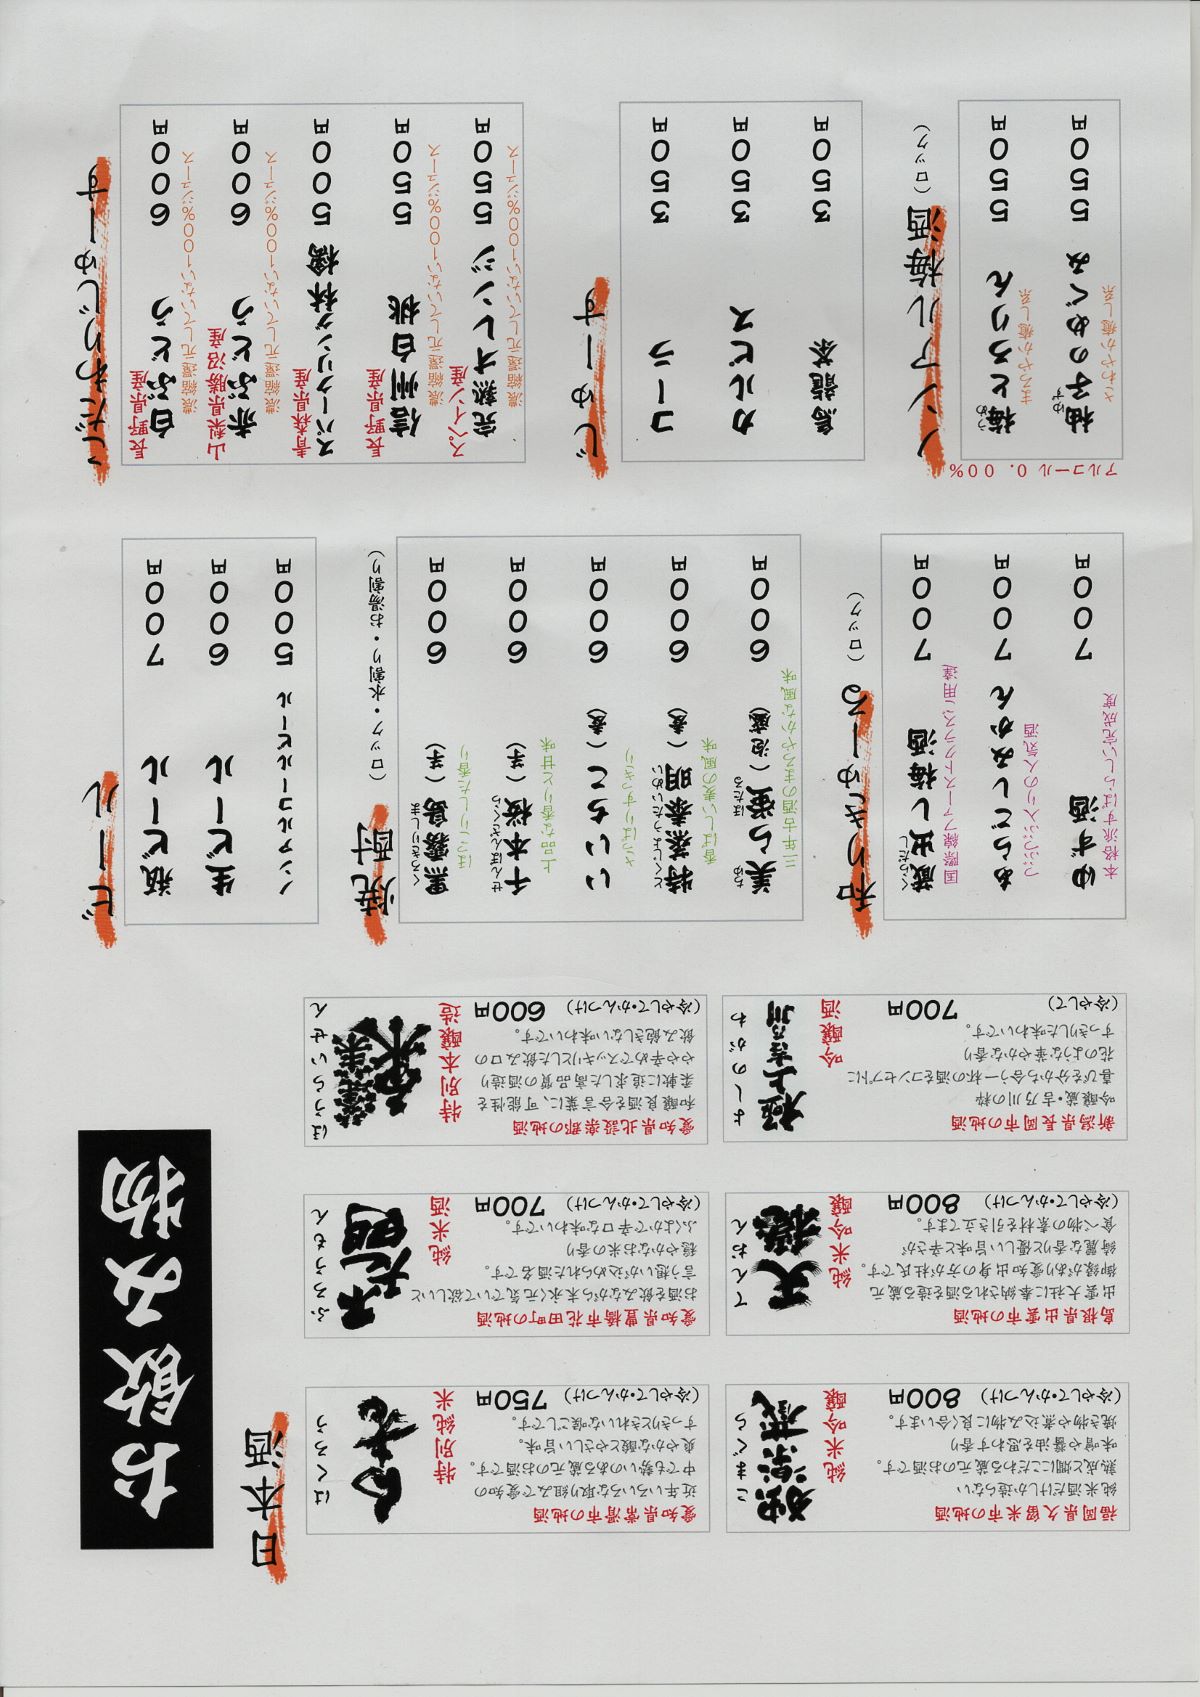 お飲み物
日本酒
はくろう
白老
特別純米
愛知県常滑市の地酒
近年いろいろな取り組みで愛知の
中でも勢いのある蔵元のお酒です。
爽やかな酸とやさしい旨味。
すっきりときれいな喉ごしです。
（冷やして・かんつけ） 750円
こまぐら
独楽蔵
純米吟醸
福岡県久留米市の地酒
純米酒だけしか造らない
熟成と燗にこだわる蔵元のお酒です。
味噌や醤油を思わす香り
焼き物や煮込み物に良く合います。
（冷やして・かんつけ） 800円
ふろうもん
不老門
純米酒
愛知県豊橋市花田町の地酒
お酒を飲みながら末永く元気でいて欲しいと
言う想いが込められた酒名です。
穏やかなお米の香り
ふくよかで辛口な味わいです。
（冷やして・かんつけ） 700円
てんおん
天穏
純米吟醸
島根県出雲市の地酒
出雲大社に奉納される酒を造る蔵元
御縁があり愛知出身の方が杜氏です。
綺麗な香りと優しい旨味と辛さが
食べ物の素材を引き立てます。
（冷やして・かんつけ） 800円
ほうらいせん
蓬莱泉
特別本醸造
愛知県北設楽郡の地酒
和醸良酒を合言葉に、可能性を
柔軟に追求した高品質の酒造り
やや辛めでスッキリとした飲み口の
飲み飽きしない味わいです。
（冷やして・かんつけ） 600円
よしのがわ
極上吉乃川
吟醸酒
新潟県長岡市の地酒
吟醸蔵・吉乃川の粋
喜びを分かち合う一杯の酒をコンセプトに
花のような華やかな香り
すっきりした味わいです。
（冷やして） 700円
ビール
瓶ビール 700円
生ビール 600円
ノンアルコールビール 500円
焼酎（ロック・水割り・お湯割り）
くろきりしま
黒霧島（芋） 600円
ほっこりした香り
せんぼんざくら
千本桜（芋） 600円
上品な香りと甘味
いいちこ（麦） 600円
さっぱりすっきり
とくじょうたいめい
特蒸泰明（麦） 600円
香ばしい麦の風味
ちゅ ほたる
美ら蛍（泡盛） 600円
三年古酒のまろやかな風味
和りきゅーる（ロック）
くらだし
蔵出し梅酒 700円
国際線ファーストクラスご用達
あらごしみかん 700円
つぶつぶ入りの人気酒
ゆず酒 700円
本格派すばらしい完成度
こだわりじゅーす
長野県産
白ぶどう 600円
濃縮還元していない100%ジュース
山梨県勝沼産
赤ぶどう 600円
濃縮還元していない100%ジュース
青森県産
スパークリング林檎 500円
長野県産
信州白桃 550円
濃縮還元していない100%ジュース
スペイン産
完熟オレンジ 550円
濃縮還元していない100%ジュース
じゅーす
コーラ 350円
カルピス 350円
烏龍茶 350円
ノンアル梅酒（ロック）
アルコール 0.00%
うめ
梅とろりん 550円
まろやか癒し系
ゆず
柚子のめぐみ 550円
さわやか癒し系